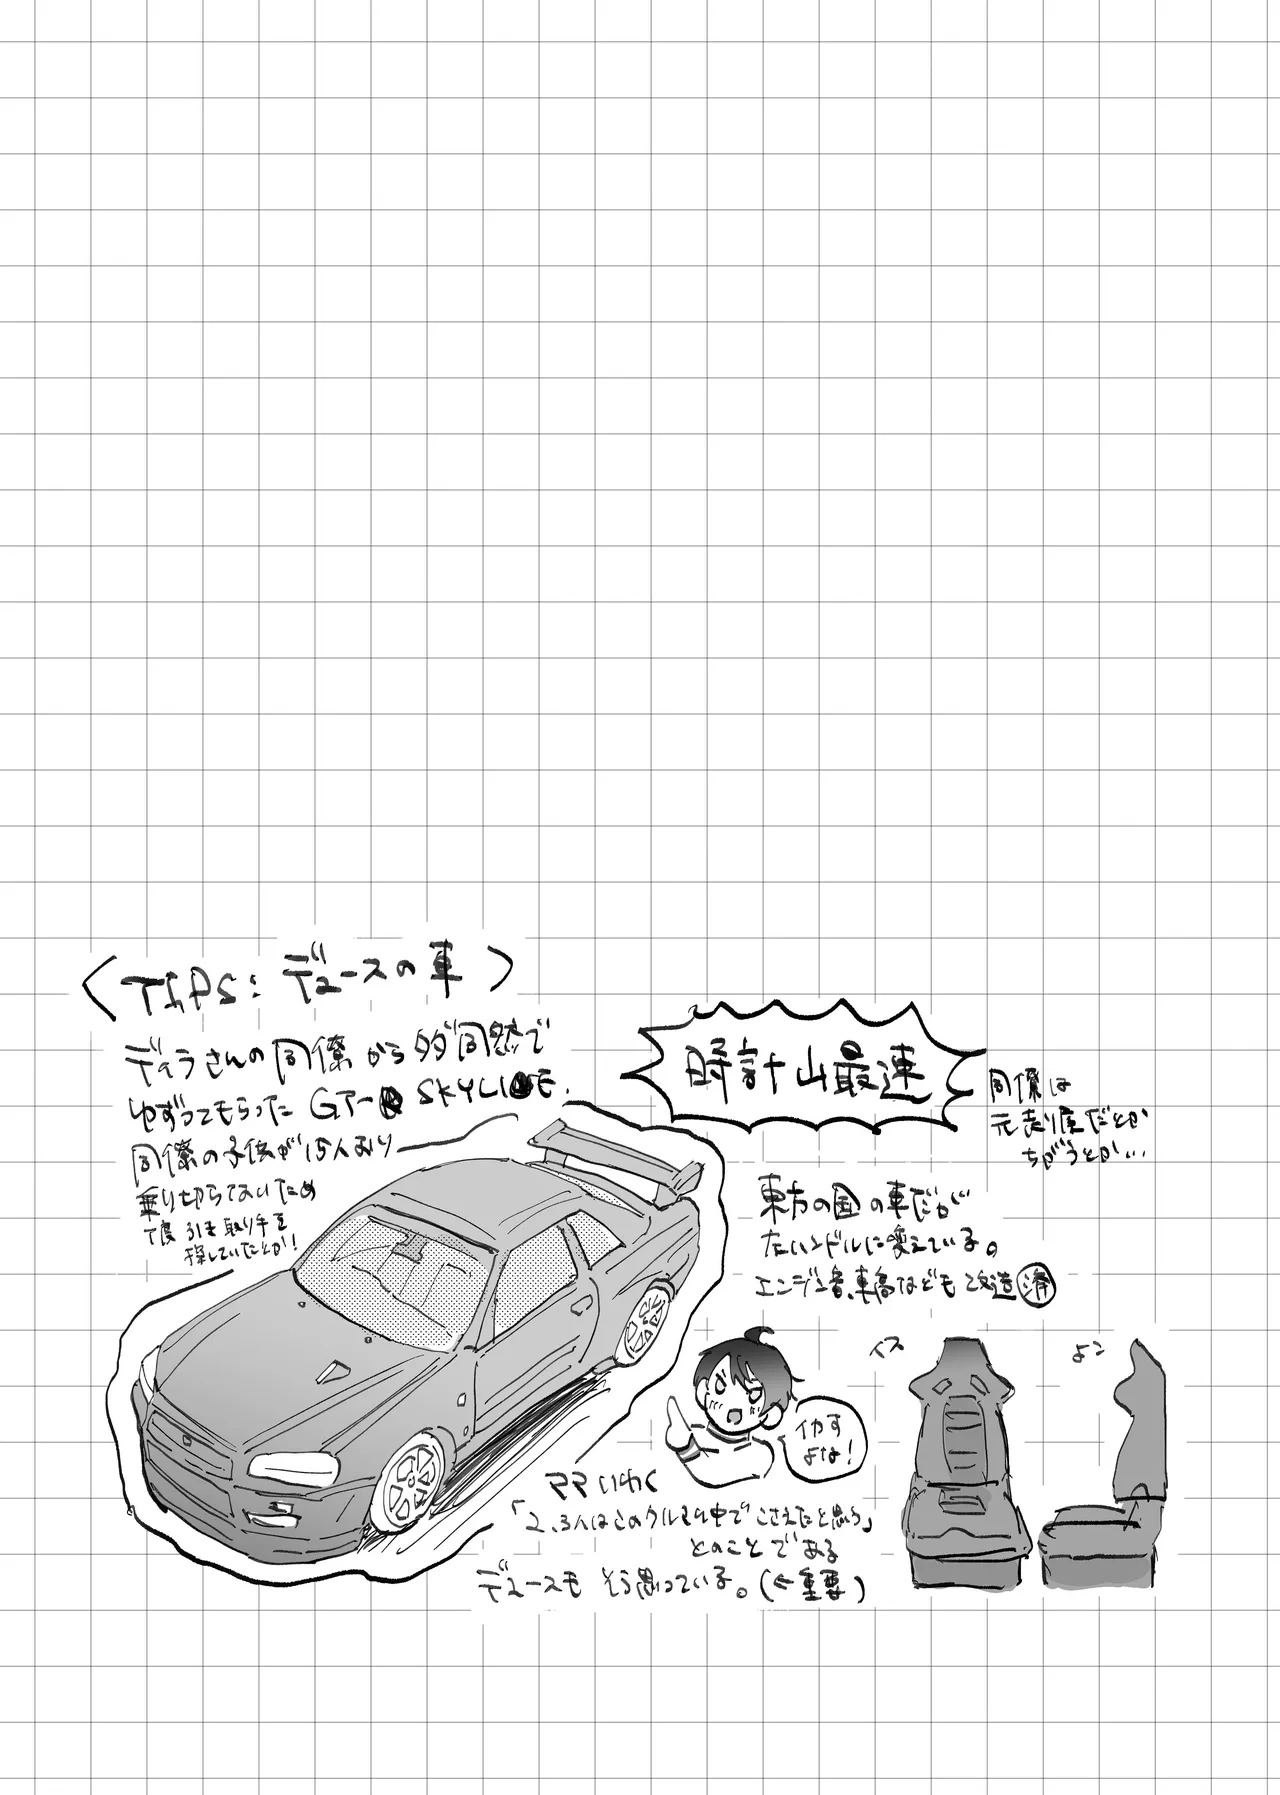 〈TIPS：デュースの車〉
ディラさんの同僚からタダ同然で
ゆずってもらったGT-R SKYLINE.
同僚の子供が15人おり
乗り切らないため
丁度引き取り手を
探していたとか!
時計山最速
同僚は
元走り屋だとか
ちがうとか…
東方の国の車だが
左ハンドルに変えている。
エンジン音、車高なども改造済
イス
よこ
イカす
よな!
ママいわく
「2、3人はこのクルマの中でこさえたと思う」
とのことである
デュースもそう思っている。(←重要)